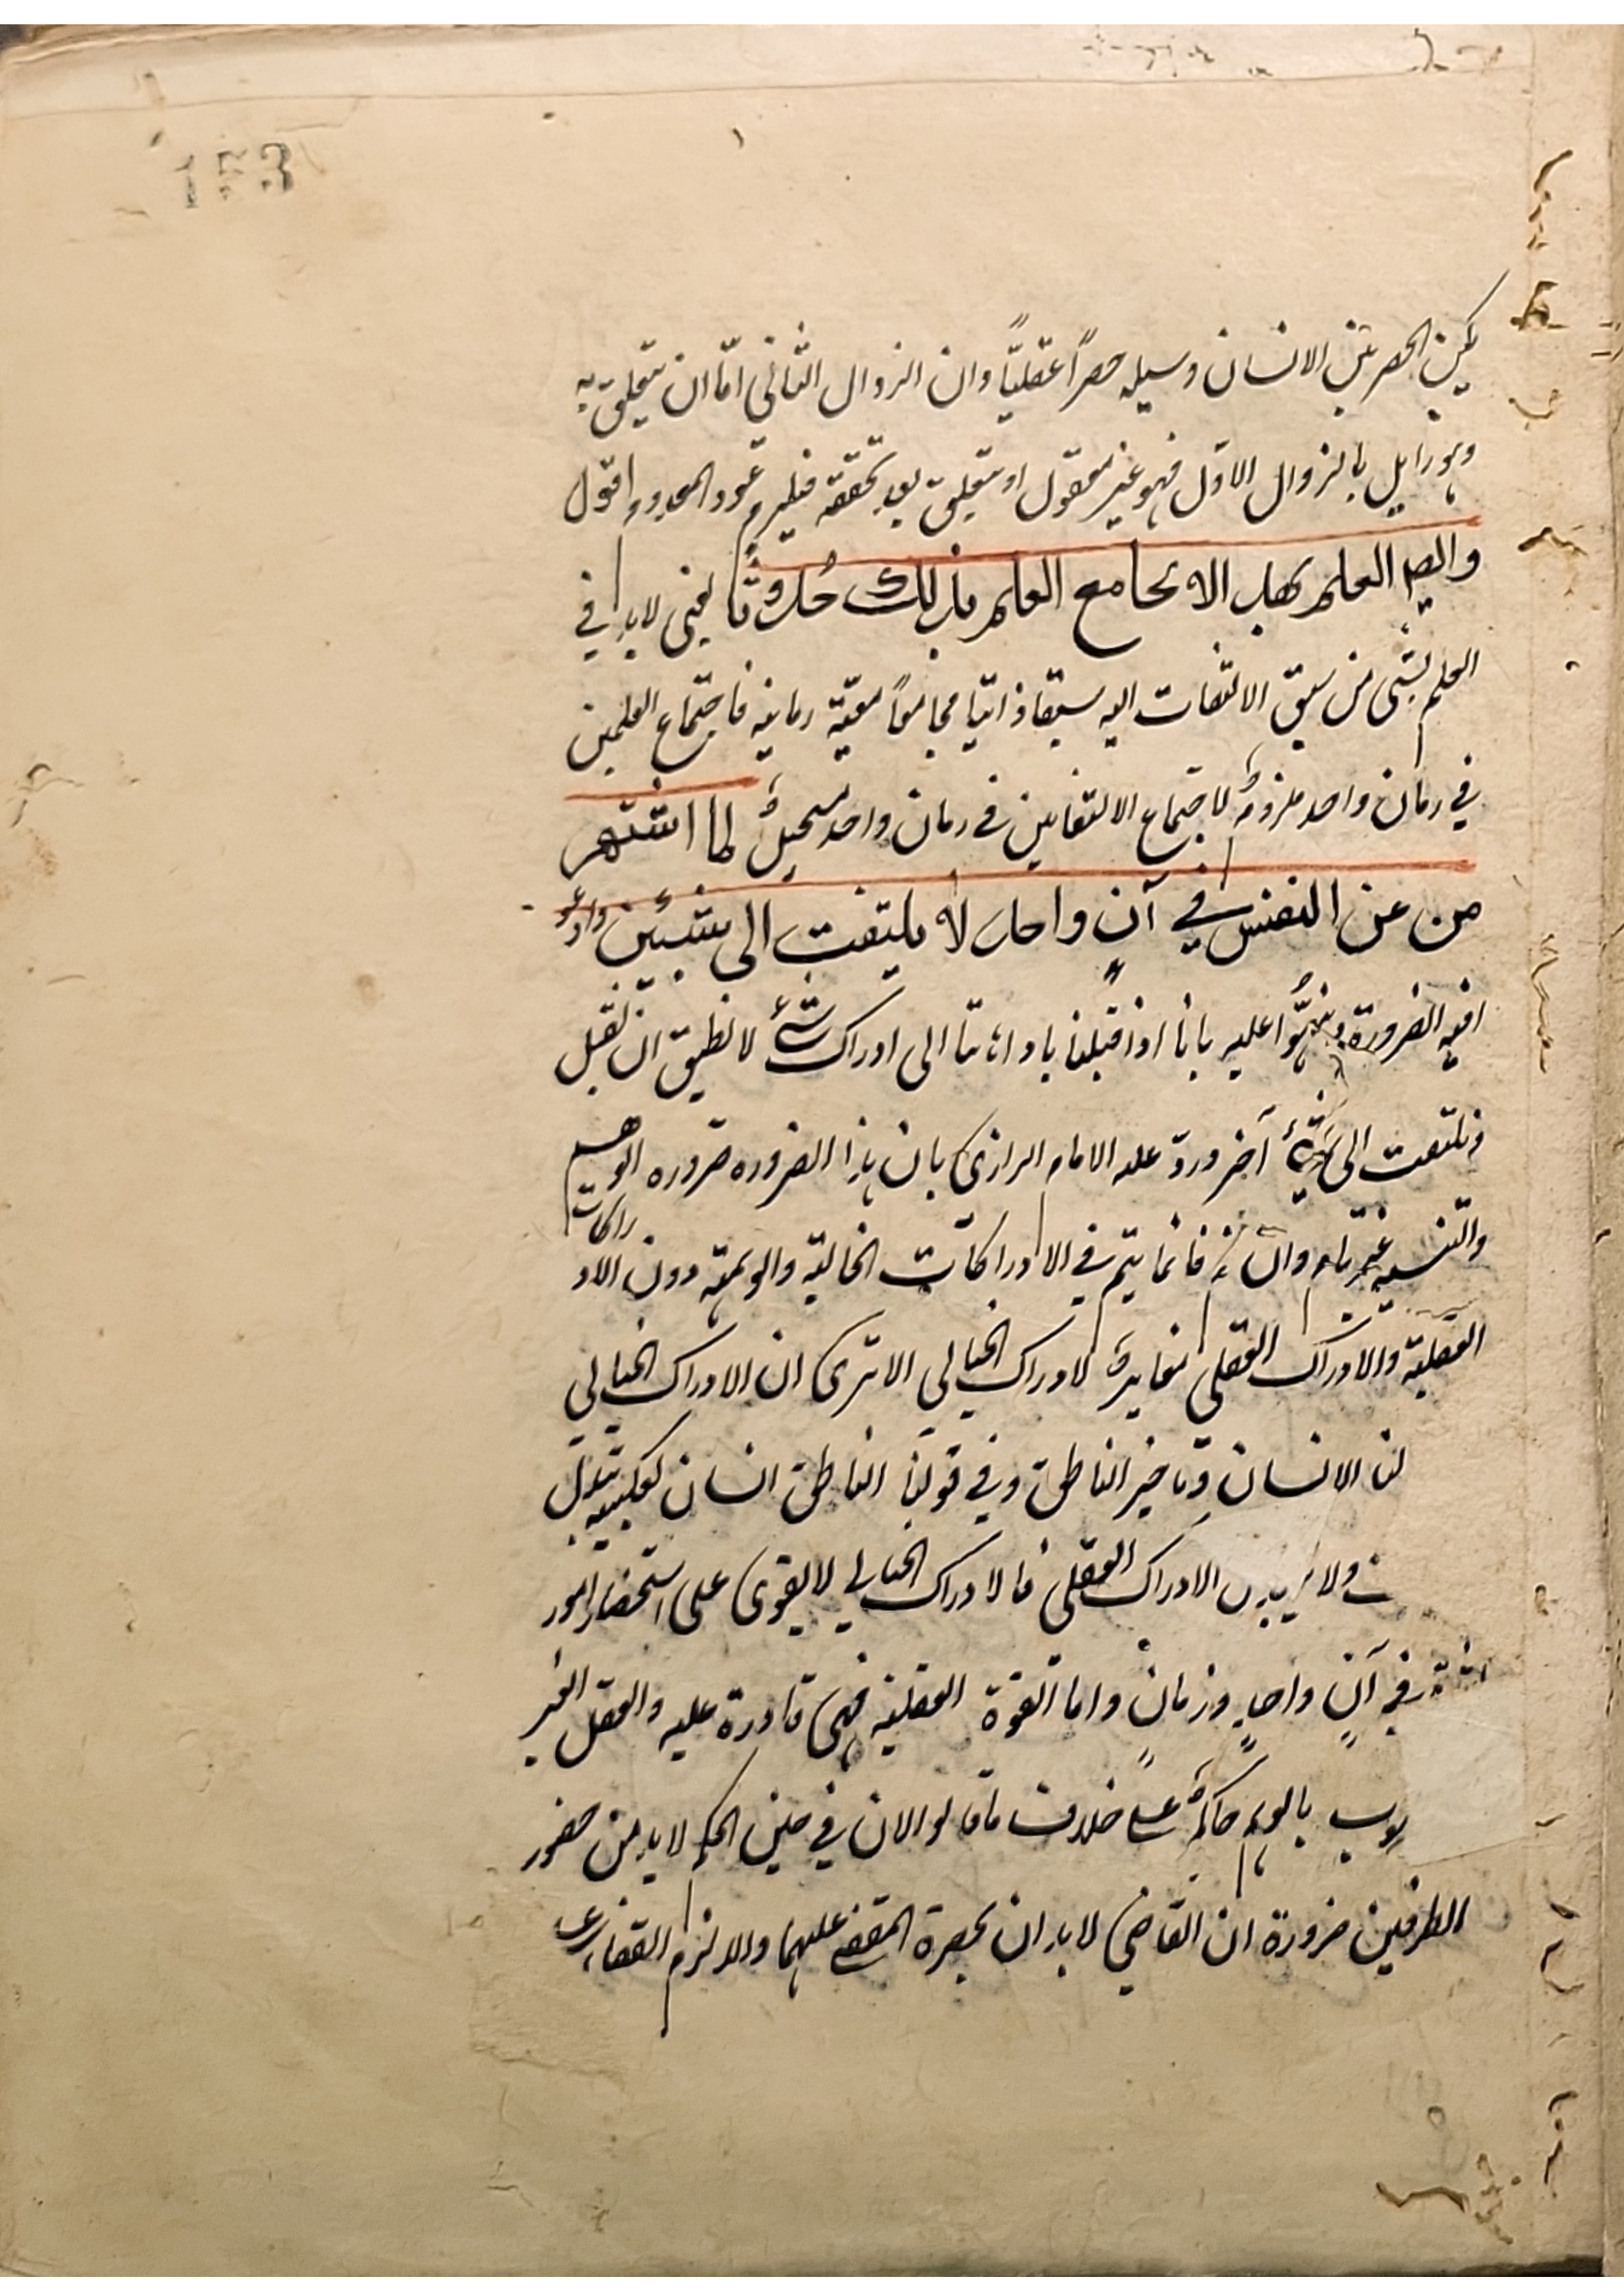 يكن الحصر بين الانسان وسلبه حصراً عقليّاً وان الزوال الثاني امّا ان يتعلق به
وهو زايل بالزوال الاول فهو غير معقول او يتعلق بعد تحققه فيلزم عود المعدوم اقول
وايضا العلم بهذا لا يجامع العلم بذلك حدوثا يعني لا بد في
العلم بشئ من سبق الالتفات اليه سبقا ذاتيا مجامعاً معية زمانية فاجتماع العلمين
في زمان واحد ملزوم لاجتماع الالتفاتين في زمان واحد مستحيل لما اشتهر
من عن النفس في آن واحد لا يلتفت الى شيئين وادعو
افيه الضرورة ونبهوا عليه بانا اذا اقبلنا باذهاننا الى ادراك شئ لا نطيق ان نقبل
ونلتفت الى شئ آخر وردّ عليه الامام الرازي بان هذا الضرورة ضرورة الوهم
والتنبيه غير تام وان تم فانما يتم في الادراكات الخيالية والوهمية دون الادراكات
العقلية والادراك العقلي مغاير للادراك الخيالي الا ترى ان الادراك الخيالي
لنا الانسان وتاخير الناطق وفي قولنا الناطق انسان لعكسه يتبدل
ولا يتبدل الادراك العقلي فالادراك الخيالي لا يقوى على استحضار امور
في آن واحد وزمان واما القوة العقلية فهي قادرة عليه والعقل الغير
بالوهم حاكم على خلاف ما قالوا لان في حين الحكم لا بد من حضور
الطرفين ضرورة ان القاضي لا بد ان يحضره المقضي عليهما والا لزم القضاء على
153